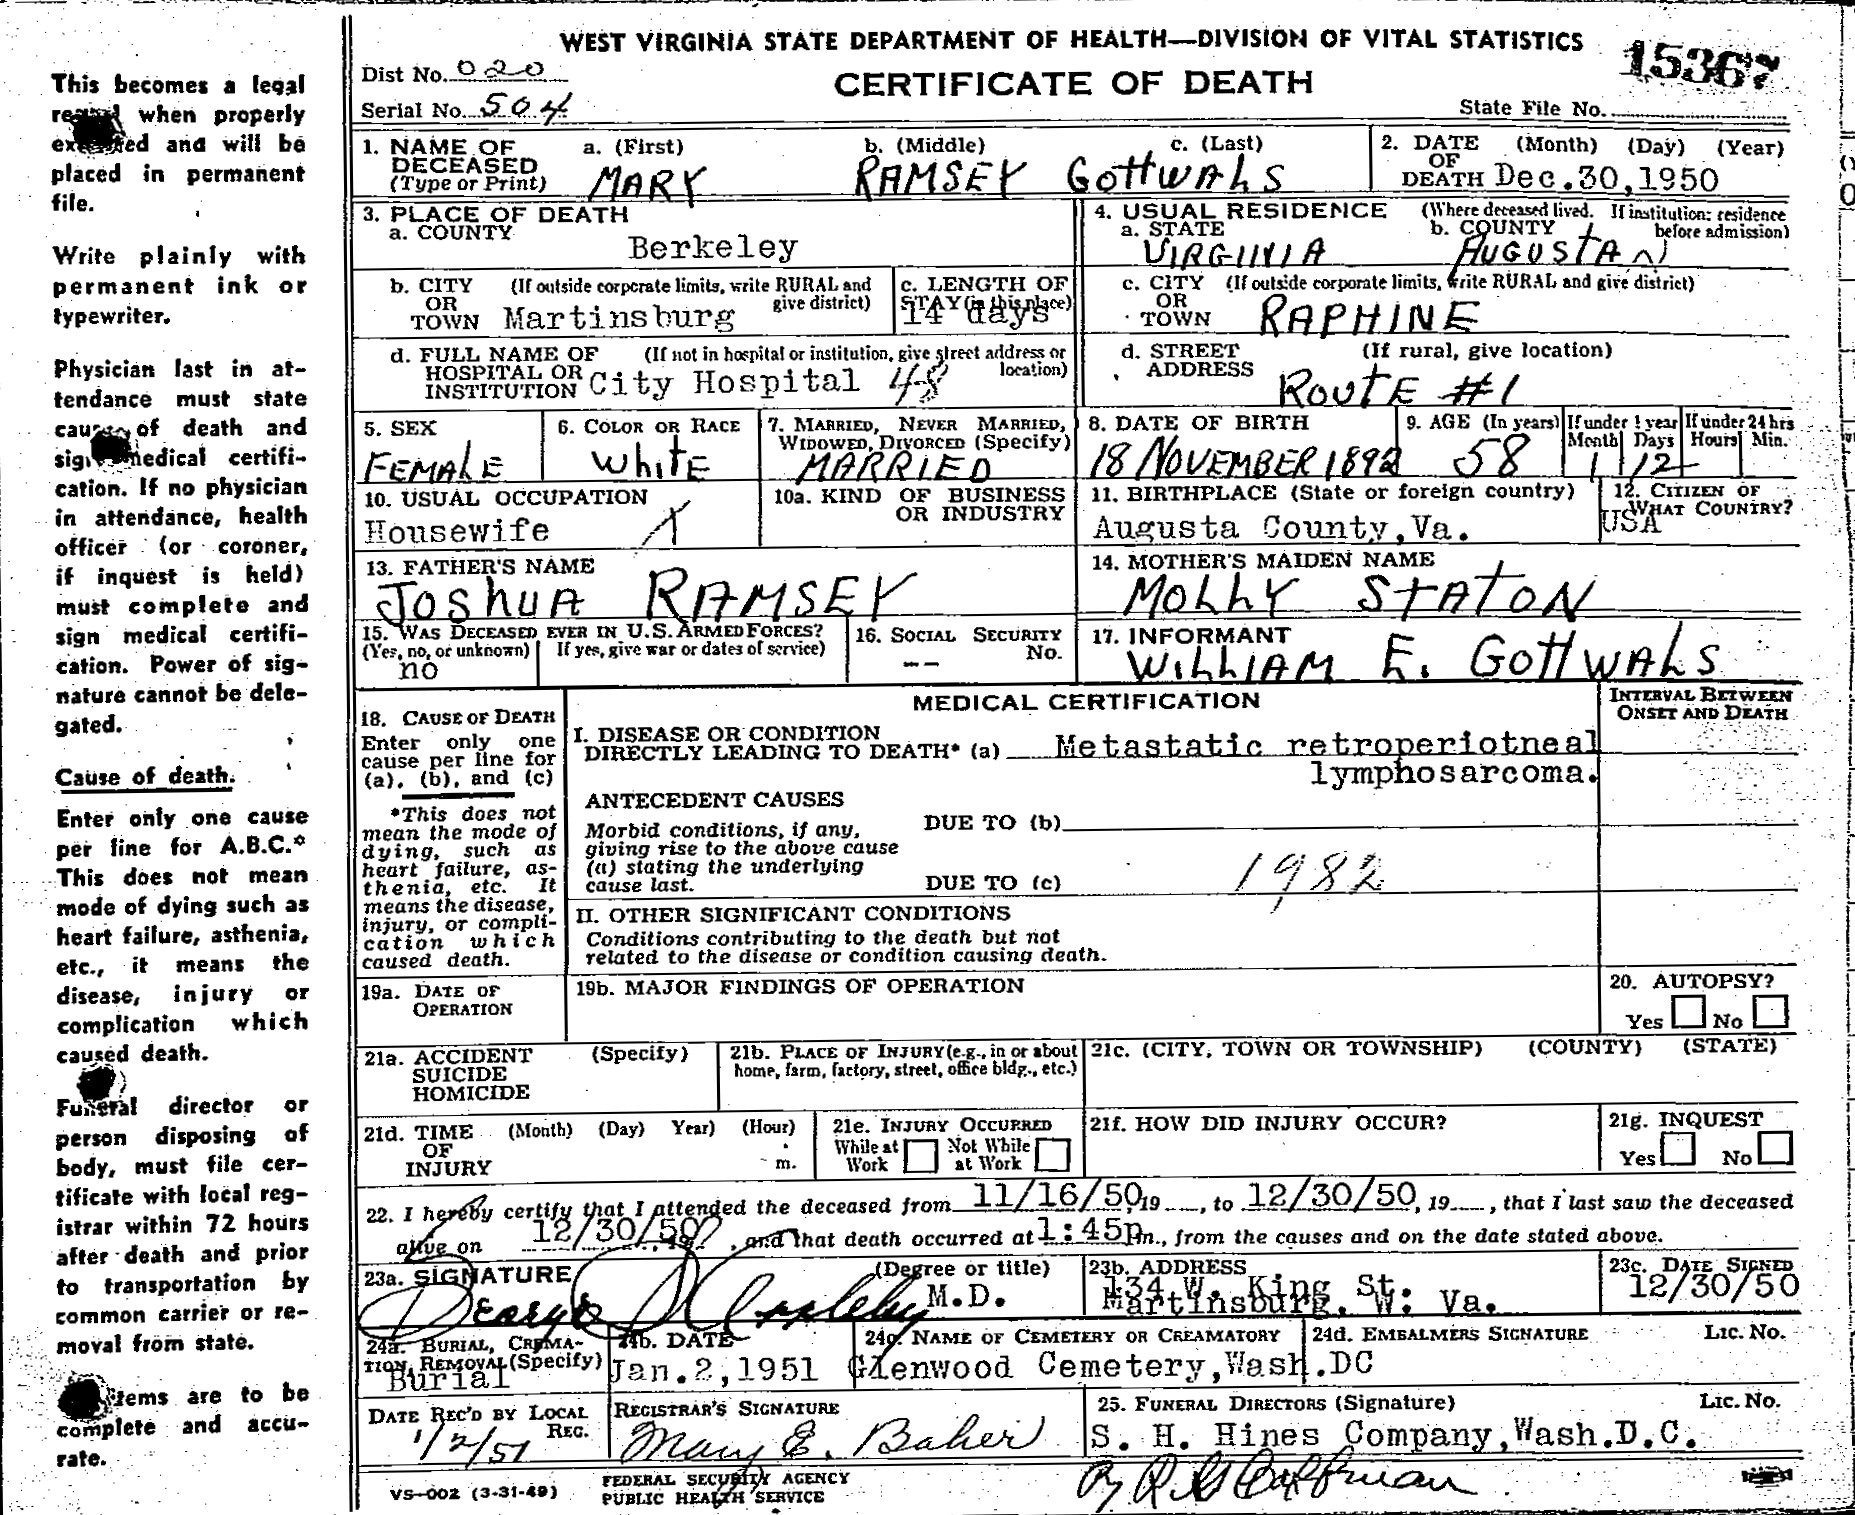 WEST VIRGINIA STATE DEPARTMENT OF HEALTH—DIVISION OF VITAL STATISTICS
15367
Dist No. 020
CERTIFICATE OF DEATH
Serial No. 504
State File No.
This becomes a legal
when properly
and will be
placed in permanent
file.
Write plainly with
permanent ink or
typewriter.
Physician last in at-
tendance must state
cause of death and
sign medical certifi-
cation. If no physician
in attendance, health
officer (or coroner,
if inquest is held)
must complete and
sign medical certifi-
cation. Power of sig-
nature cannot be dele-
gated.
Cause of death.
Enter only one cause
per line for A.B.C.*
This does not mean
mode of dying such as
heart failure, asthenia,
etc., it means the
disease, injury or
complication which
caused death.
Funeral director or
person disposing of
body, must file cer-
tificate with local reg-
istrar within 72 hours
after death and prior
to transportation by
common carrier or re-
moval from state.
items are to be
complete and accu-
rate.
1. NAME OF DECEASED (Type or Print) a. (First) b. (Middle) c. (Last)
MARY RAMSEY GOTTWALS
2. DATE OF DEATH (Month) (Day) (Year)
Dec.30,1950
3. PLACE OF DEATH
a. COUNTY Berkeley
4. USUAL RESIDENCE (Where deceased lived. If institution: residence before admission)
a. STATE VIRGINIA b. COUNTY AUGUSTA
b. CITY OR TOWN (If outside corporate limits, write RURAL and give district) Martinsburg
c. LENGTH OF STAY (in this place) 14 days
c. CITY OR TOWN (If outside corporate limits, write RURAL and give district) RAPHINE
d. FULL NAME OF HOSPITAL OR INSTITUTION (If not in hospital or institution, give street address or location) City Hospital 48
d. STREET ADDRESS (If rural, give location) ROUTE #1
5. SEX FEMALE
6. COLOR OR RACE WHITE
7. MARRIED, NEVER MARRIED, WIDOWED, DIVORCED (Specify) MARRIED
8. DATE OF BIRTH 18 NOVEMBER 1892
9. AGE (In years) 58 If under 1 year Month 1 Days 12 If under 24 hrs Hours Min.
10. USUAL OCCUPATION Housewife
10a. KIND OF BUSINESS OR INDUSTRY
11. BIRTHPLACE (State or foreign country) Augusta County,Va.
12. CITIZEN OF WHAT COUNTRY? USA
13. FATHER'S NAME JOSHUA RAMSEY
14. MOTHER'S MAIDEN NAME MOLLY STATON
15. WAS DECEASED EVER IN U.S. ARMED FORCES? (Yes, no, or unknown) If yes, give war or dates of service)
no
16. SOCIAL SECURITY No. --
17. INFORMANT WILLIAM E. GOTTWALS
MEDICAL CERTIFICATION
INTERVAL BETWEEN ONSET AND DEATH
18. CAUSE OF DEATH
Enter only one cause per line for (a), (b), and (c)
*This does not mean the mode of dying, such as heart failure, asthenia, etc. It means the disease, injury, or complication which caused death.
I. DISEASE OR CONDITION DIRECTLY LEADING TO DEATH* (a) Metastatic retroperiotneal
lymphosarcoma.
ANTECEDENT CAUSES
Morbid conditions, if any, giving rise to the above cause (a) stating the underlying cause last.
DUE TO (b)
DUE TO (c)
1982
II. OTHER SIGNIFICANT CONDITIONS
Conditions contributing to the death but not
related to the disease or condition causing death.
19a. DATE OF OPERATION
19b. MAJOR FINDINGS OF OPERATION
20. AUTOPSY?
Yes No
21a. ACCIDENT SUICIDE HOMICIDE (Specify)
21b. PLACE OF INJURY (e.g., in or about home, farm, factory, street, office bldg., etc.)
21c. (CITY, TOWN OR TOWNSHIP) (COUNTY) (STATE)
21d. TIME OF INJURY (Month) (Day) Year) (Hour) m.
21e. INJURY OCCURRED
While at Work Not While at Work
21f. HOW DID INJURY OCCUR?
21g. INQUEST
Yes No
22. I hereby certify that I attended the deceased from 11/16/50, 19, to 12/30/50, 19, that I last saw the deceased
alive on 12/30/50, and that death occurred at 1:45p m., from the causes and on the date stated above.
23a. SIGNATURE (Degree or title) M.D.
23b. ADDRESS 134 W. King St.
Martinsburg, W. Va.
23c. DATE SIGNED 12/30/50
24a. BURIAL, CREMATION, REMOVAL (Specify) Burial
24b. DATE Jan.2,1951
24c. NAME OF CEMETERY OR CREAMATORY Glenwood Cemetery,Wash.DC
24d. EMBALMERS SIGNATURE LIC. NO.
DATE REC'D BY LOCAL REG. 1/2/51
REGISTRAR'S SIGNATURE Mary E. Baker
25. FUNERAL DIRECTORS (Signature) LIC. NO.
S. H. Hines Company,Wash.D.C.
VS-002 (3-31-49)
FEDERAL SECURITY AGENCY
PUBLIC HEALTH SERVICE
By R.